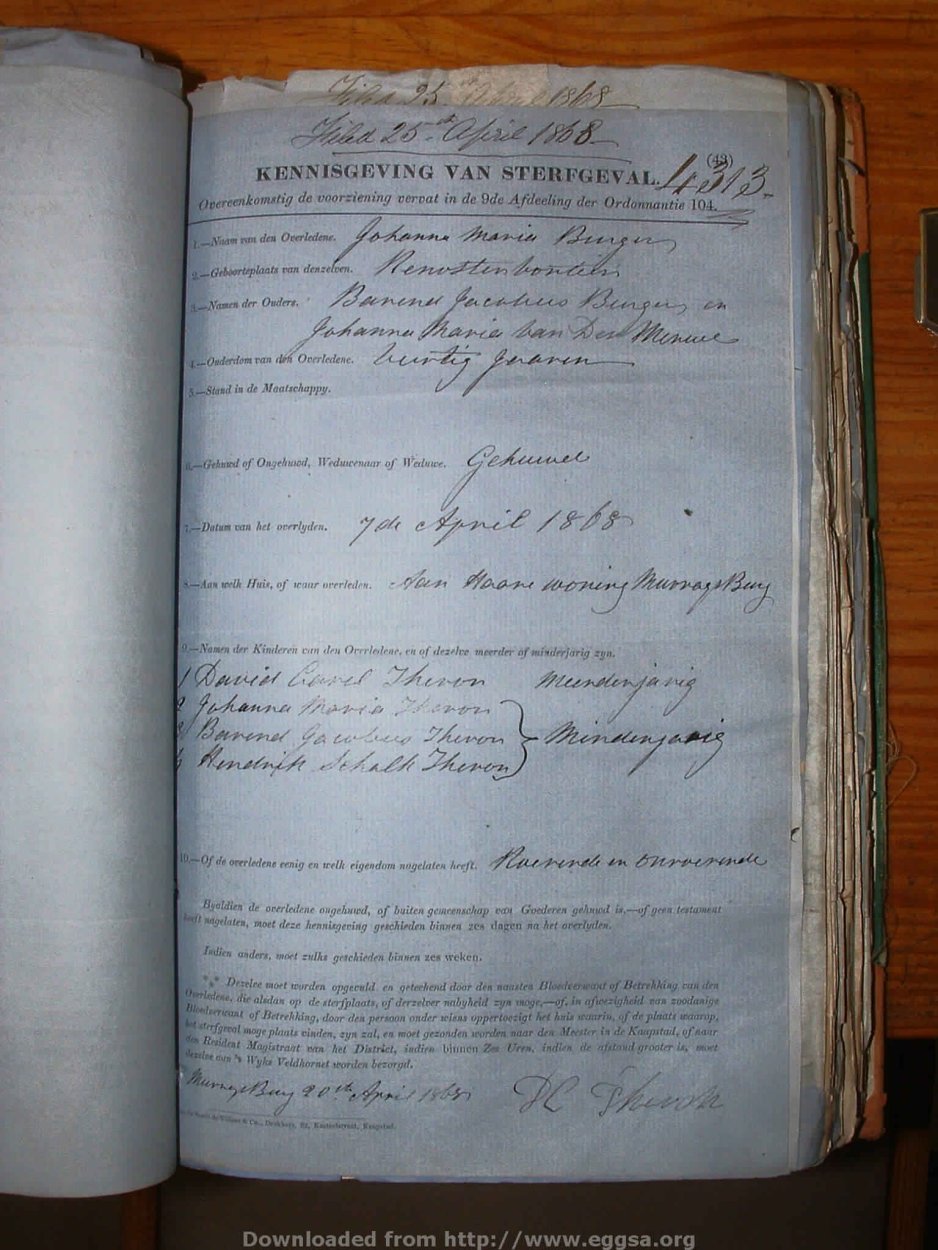 Filed 25 April 1868
Filed 25th April 1868
(43)
KENNISGEVING VAN STERFGEVAL. 4313
Overeenkomstig de voorziening vervat in de 9de Afdeeling der Ordonnantie 104.
1.—Naam van den Overledene. Johanna Maria Burger
2.—Geboorteplaats van denzelven. Renosterfontein
3.—Namen der Ouders. Barend Jacobus Burger en
Johanna Maria Van Der Merwe
4.—Ouderdom van den Overledene. Veertig Jaaren
5.—Stand in de Maatschappy.
6.—Gehuwd of Ongehuwd, Weduwenaar of Weduwe. Gehuwd
7.—Datum van het overlyden. 7de April 1868
8.—Aan welk Huis, of waar overleden. Aan Haare woning MurraysBurg
9.—Namen der Kinderen van den Overledene, en of dezelve meerder of minderjarig zyn.
1 David Carel Theron Meerderjarig
2 Johanna Maria Theron
3 Barend Jacobus Theron Minderjarig
4 Hendrik Schalk Theron
10.—Of de overledene eenig en welk eigendom nagelaten heeft. Roerende en Onroerende
Byaldien de overledene ongehuwd, of buiten gemeenschap van Goederen gehuwd is,—of geen testament
heeft nagelaten, moet deze kennisgeving geschieden binnen zes dagen na het overlyden.
Indien anders, moet zulks geschieden binnen zes weken.
Dezelve moet worden opgevuld en geteekend door den naasten Bloedverwant of Betrekking van den
Overledene, die alsdan op de sterfplaats, of derzelver nabyheid zyn moge,—of, in afwezigheid van zoodanige
Bloedverwant of Betrekking, door den persoon onder wiens oppertoezigt het huis waarin, of de plaats waarop,
het sterfgeval moge plaats vinden, zyn zal, en moet gezonden worden naar den Meester in de Kaapstad, of naar
den Resident Magistraat van het District, indien binnen Zes Uren, indien de afstand grooter is, moet
dezelve aan 's Wyks Veldkornet worden bezorgd.
MurraysBurg 20th April 1868 DC Theron
& Co., Drukkers, Kasteelstraat, Kaapstad.
Downloaded from http://www.eggsa.org